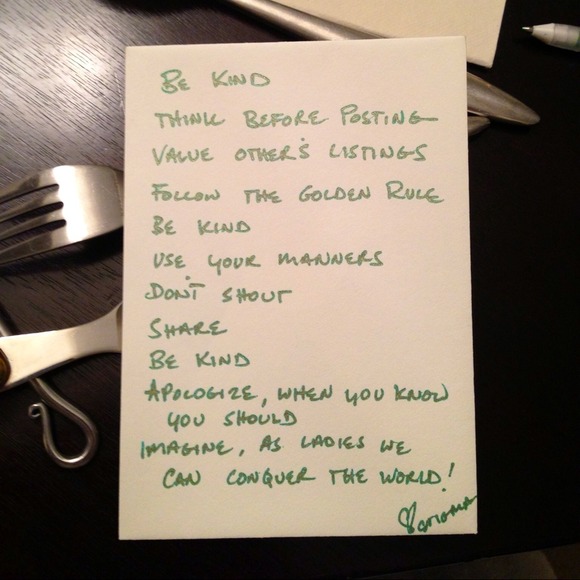 BE KIND
THINK BEFORE POSTING
VALUE OTHER'S LISTINGS
FOLLOW THE GOLDEN RULE
BE KIND
USE YOUR MANNERS
DON'T SHOUT
SHARE
BE KIND
APOLOGIZE, WHEN YOU KNOW
YOU SHOULD
IMAGINE, AS LADIES WE
CAN CONQUER THE WORLD!